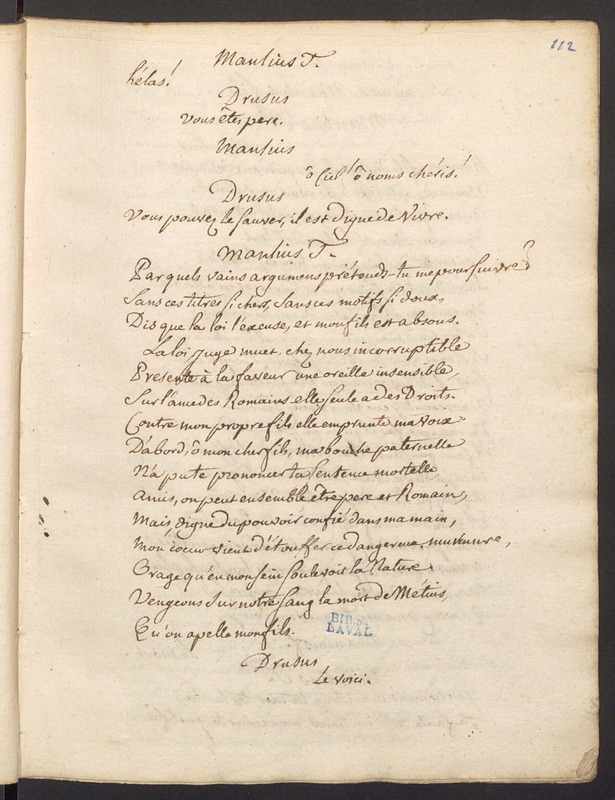 112
Manlius T.
hélas!
Drusus
vous êtes pere.
Manlius
ô Ciel! ô noms chéris!
Drusus
Vous pouvez le sauver, il est digne de vivre.
Manlius T.
Par quels vains argumens prétends-tu me poursuivre?
Sans ces titres si chers, sans ces motifs si doux,
Dis que la loi l'excuse, et mon fils est absous.
La loi, juge muet, chez nous incorruptible
Presente à la faveur une oreille insensible,
Sur l'ame des Romains elle seule a des Droits.
Contre mon propre fils elle emprunte ma voix
D'abord, ô mon cher fils, ma bouche paternelle
N'a pu te prononcer ta sentence mortelle
Amis, on peut ensemble être pere et Romain,
Mais, digne du pouvoir confié dans ma main,
Mon coeur vient d'étouffer ce dangereux murmure,
Orage qu'en mon sein soulevoit la Nature.
Vengeons sur notre sang la mort de Métius,
Qu'on apelle mon fils.
BIB. DE
LAVAL
Drusus
Le voici.